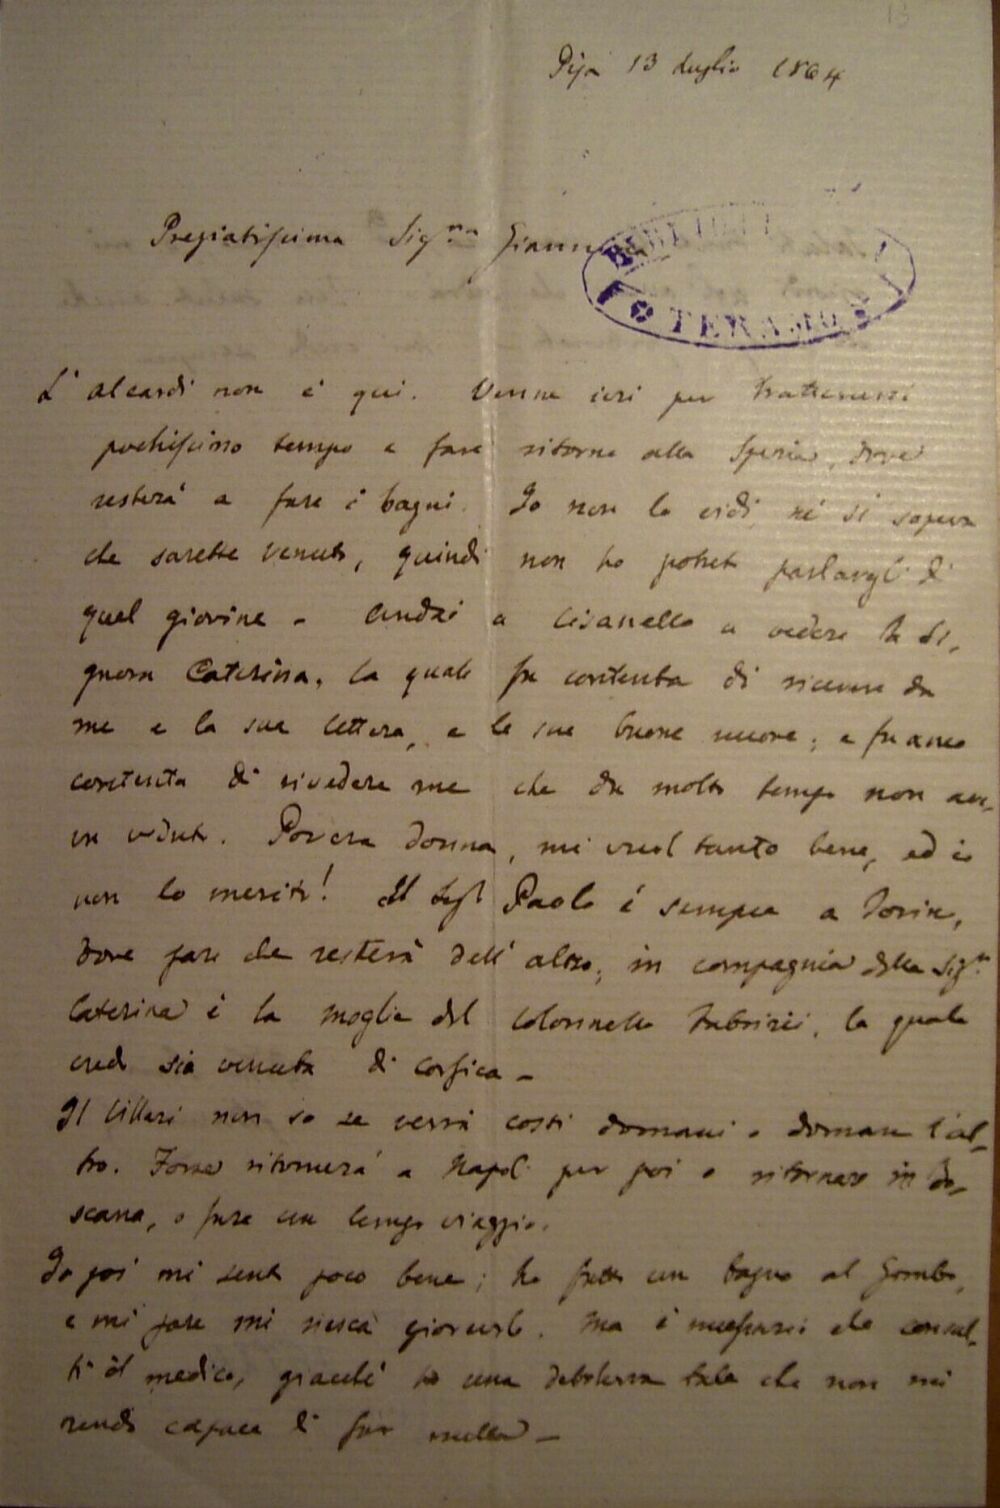 13
Pisa 13 Luglio 1864
Pregiatissima Sig.na Giannina
TERAMO
L'Aleardi non è qui. Venne ieri per trattenersi
pochissimo tempo e fare ritorno alla Spezia, dove
resterà a fare i bagni. Io non lo vidi, nè si sapeva
che sarebbe venuto, quindi non ho potuto parlargli di
quel giovine - Andai a Cisanello a vedere la Si-
gnora Caterina, la quale fu contenta di ricevere da
me e la sua lettera, e le sue buone nuove; e fu anco
contenta di rivedere me che da molto tempo non ave-
va veduto. Povera donna, mi vuol tanto bene, ed io
non lo merito! Il Sigr Paolo è sempre a Torino,
dove pare che resterà dell'altro; in compagnia della Sig.ra
Caterina è la moglie del Colonnello Fabrizii, la quale
credo sia venuta di Corsica -
Il Villari non so se verrà costì domani o doman l'al-
tro. Forse ritornerà a Napoli per poi o ritornare in To-
scana, o fare un lungo viaggio.
Io poi mi sento poco bene; ho fatto un bagno al Gombo,
e mi pare mi riesca giovevole. Ma è necessario che consul-
ti il medico, giacchè ho una debolezza tale che non mi
rende capace di far nulla -